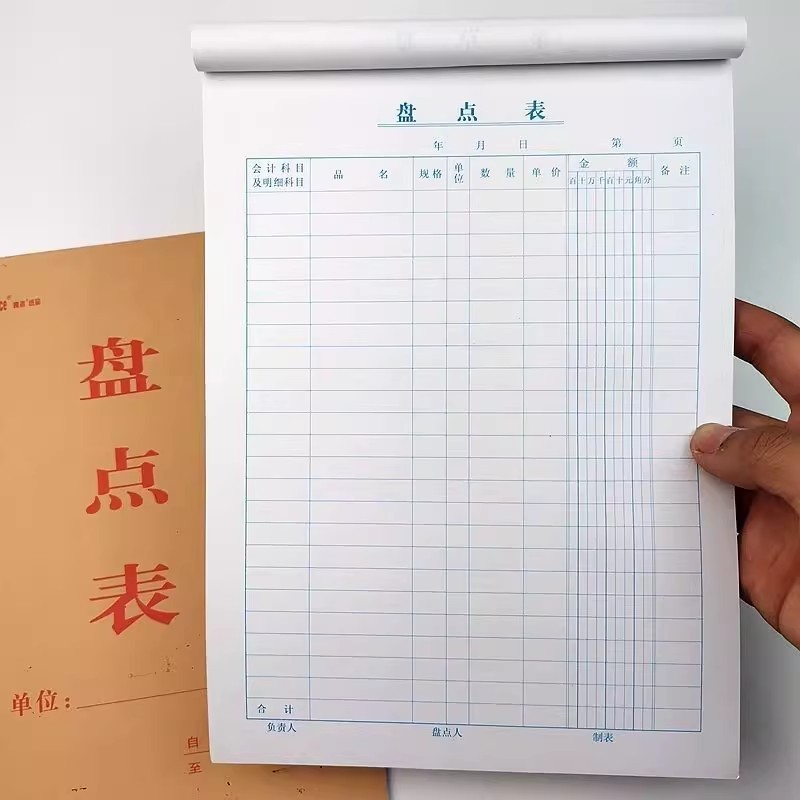 盘 点 表
年 月 日 第 页
会计科目及明细科目 品 名 规格 单位 数 量 单 价 金 额 备 注
百十万千百十元角分
合 计
负责人 盘点人 制表
盘
点
表
单位:
自
至